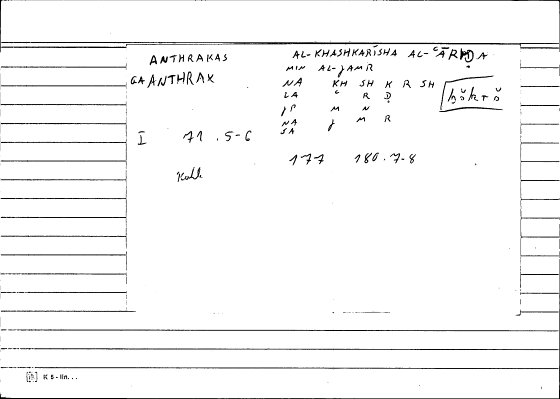 ANTHRAKAS
GA ANTHRAX
AL-KHASHKARĪSHA AL-ʿĀRIḌA
MIN AL-JAMR
NA KH SH K R SH
LA ʿ R Ḍ
JP M N
NA J M R
SA
I 71 .5-6
177 180.7-8
Kohle
K 8 - lin...